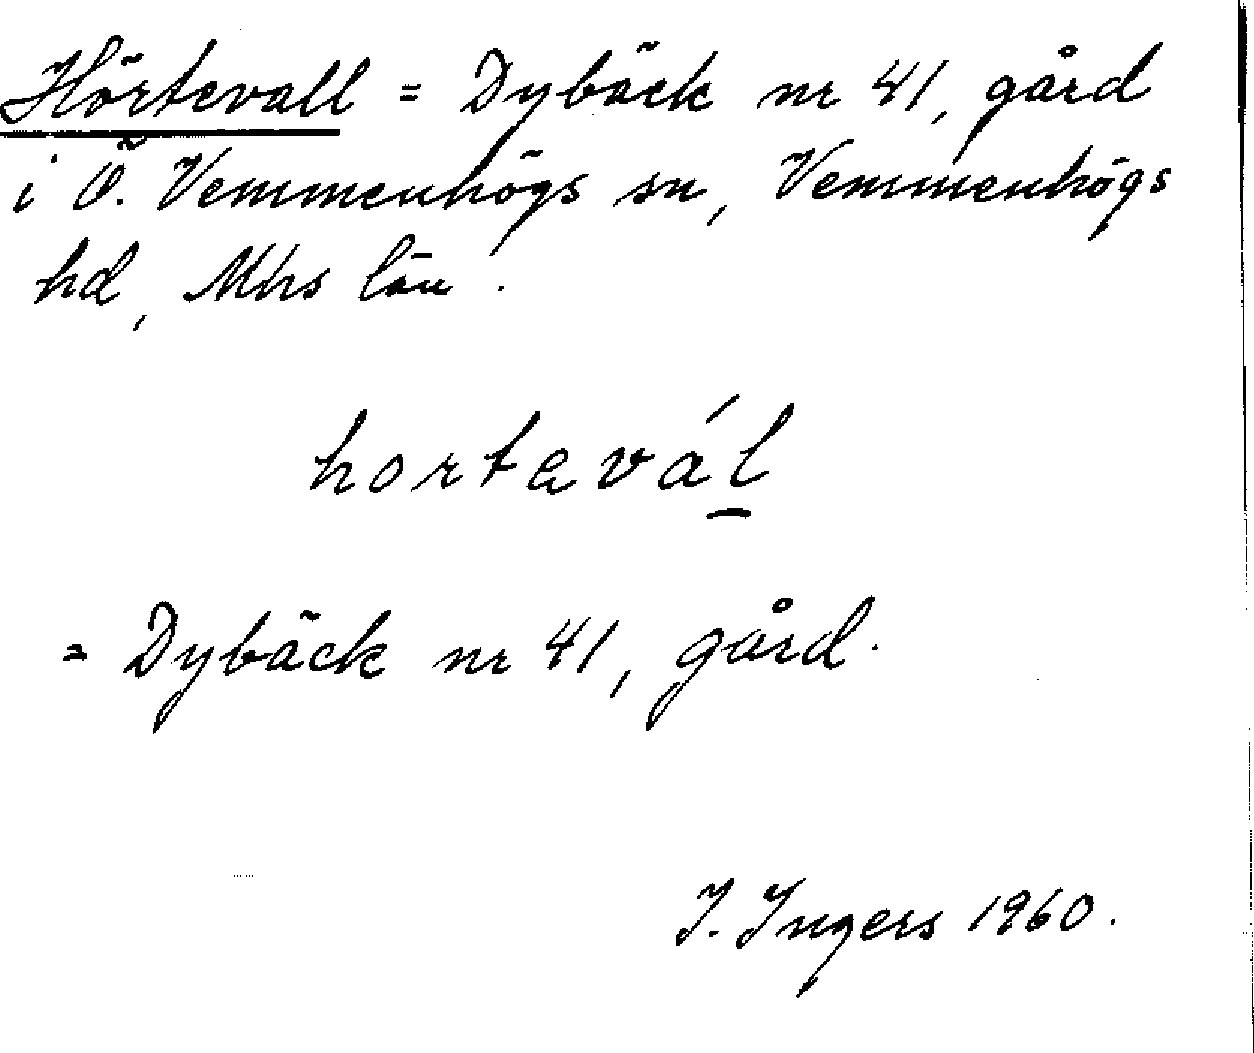 Hörtevall = Dybäck nr 41, gård
i Ö. Vemmenhögs sn, Vemmenhögs
hd, Mhs län.
hortavál̲
= Dybäck nr 41, gård.
I. Ingers 1960.